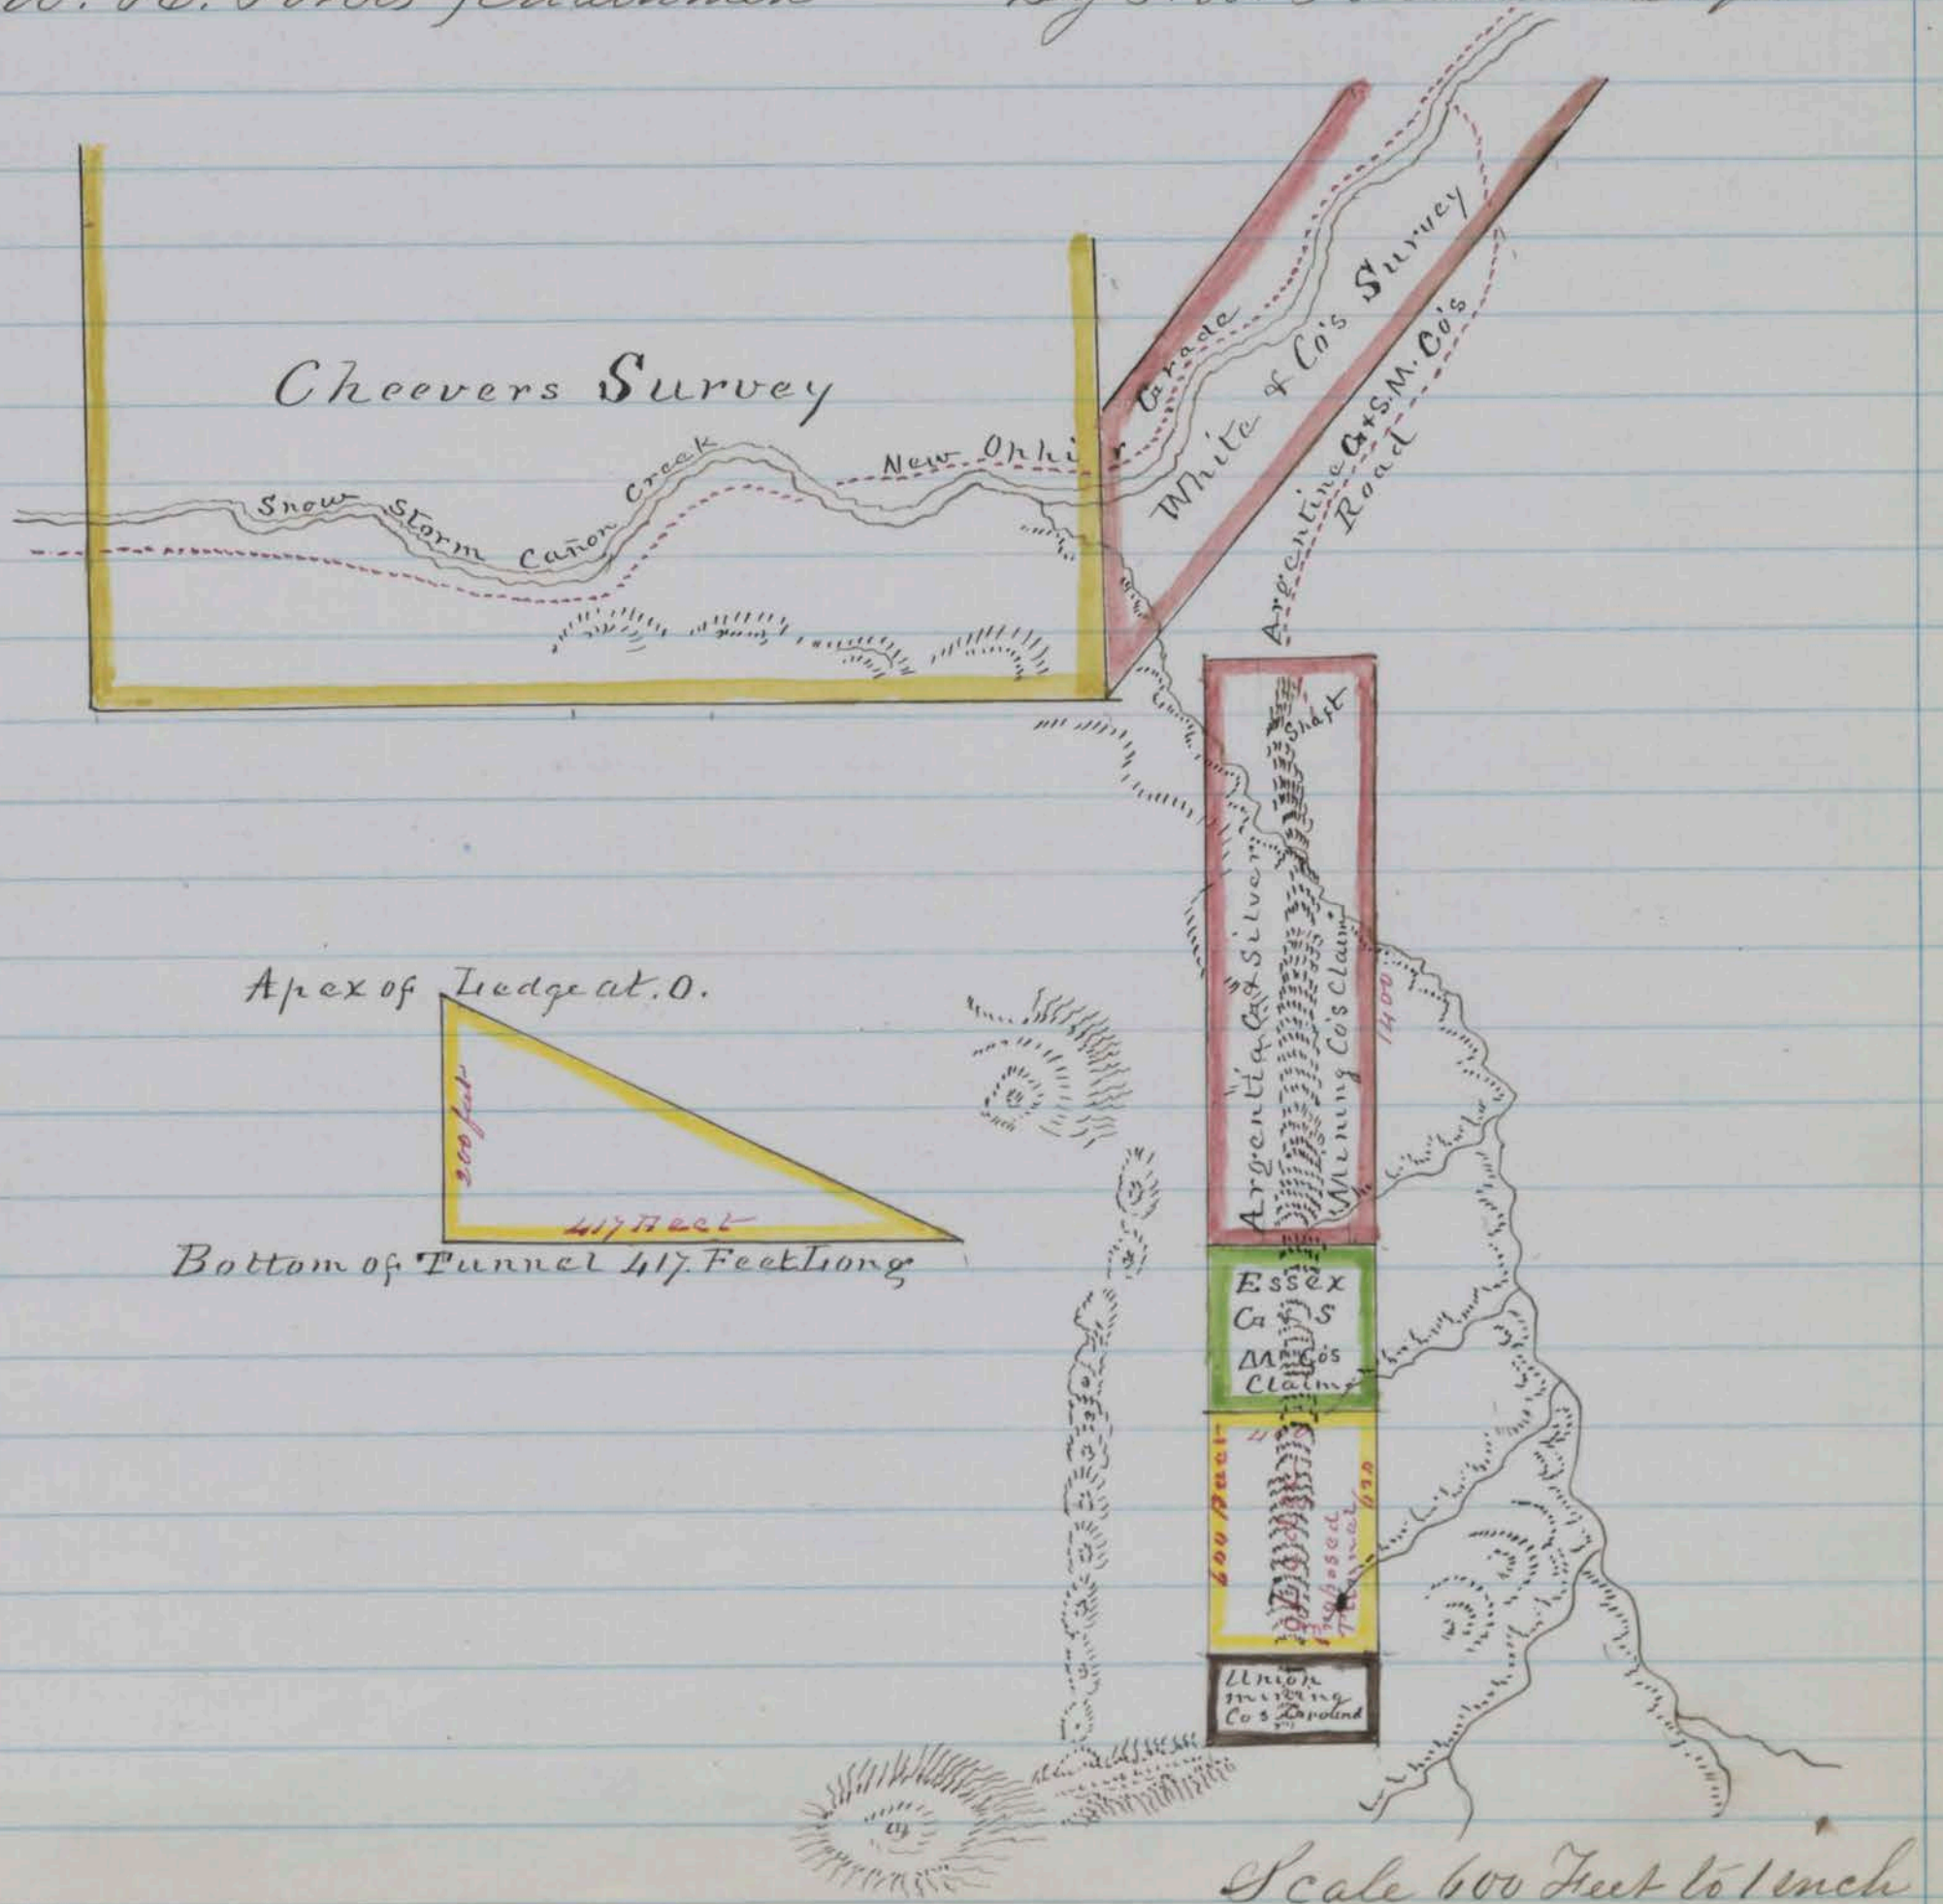 By
Cheevers Survey
Snow Storm Cañon Creek
New Ophir Grade
White & Co's Survey
Argentine G & S. M. Co's
Road
Shaft
Argentia G & Silver
Mining Co's Claim
1400
Apex of Ledge at. O.
200 feet
417 Feet
Bottom of Tunnel 417. Feet Long
Essex
G & S
M Co's
Claim
600 Feet
Proposed
Tunnel
Union
mining
Co s Ground
Scale 600 Feet to 1 inch